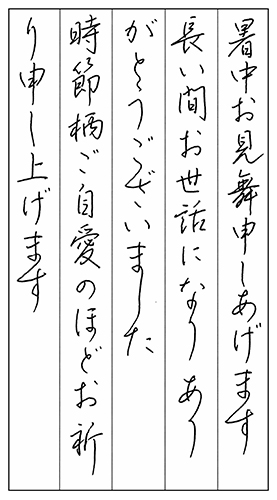 暑中お見舞申しあげます
長い間お世話になりあり
がとうございました
時節柄ご自愛のほどお祈
り申し上げます